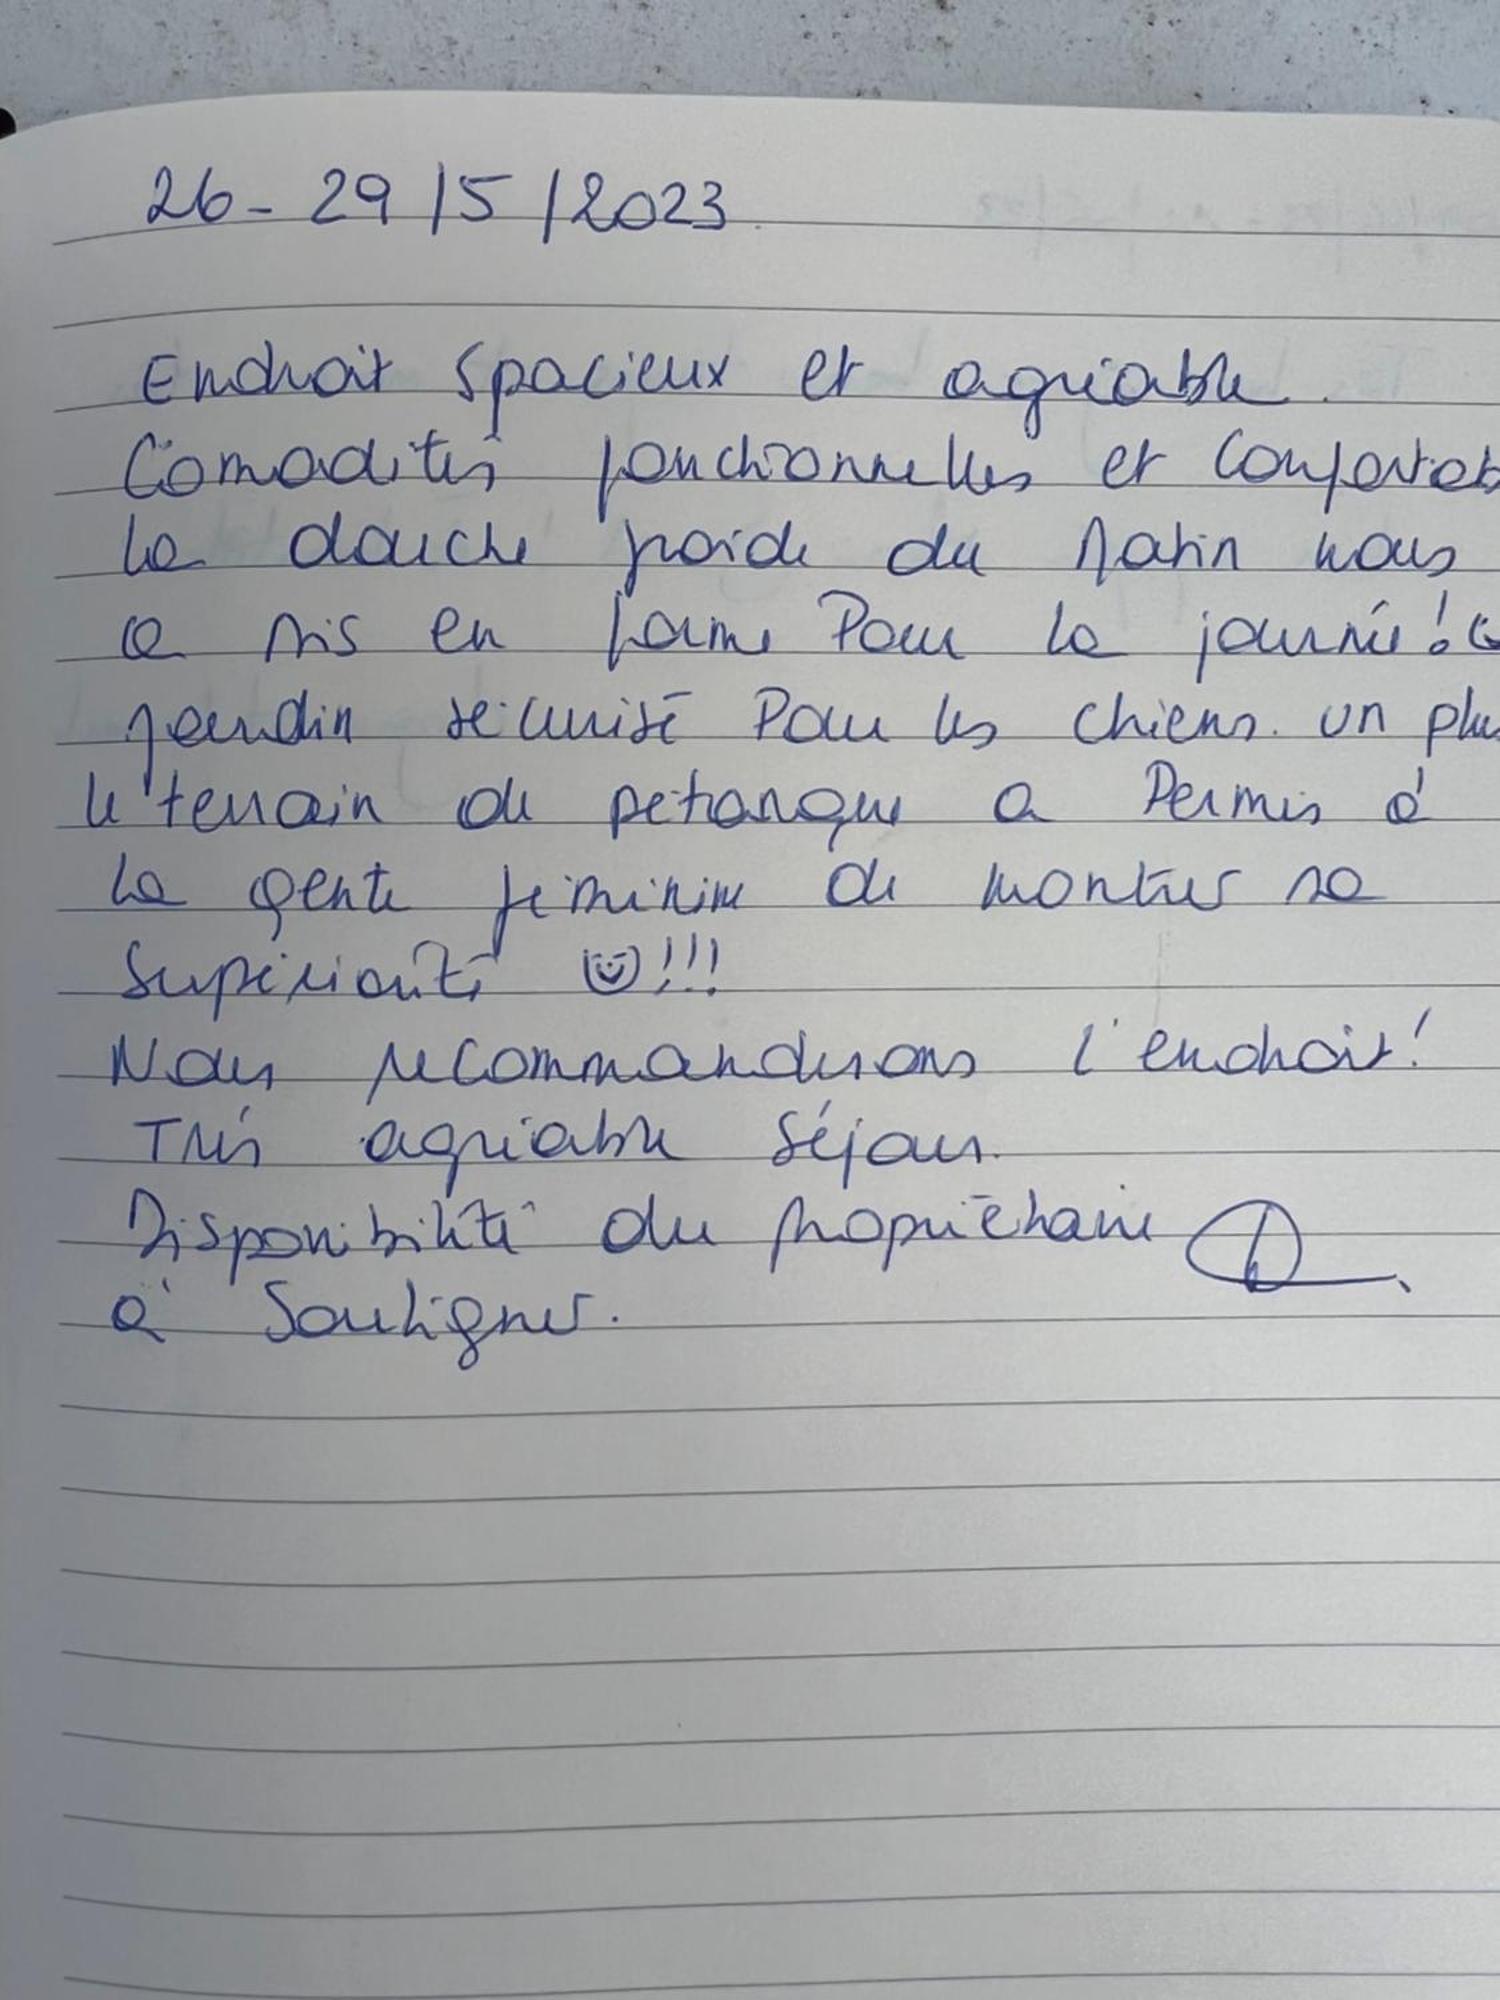 26 - 29 /5 /2023
Endroit spacieux et agréable.
Comodités fonctionnelles et confortab
La douche froide du matin nous
a mis en forme pour la journée !
jardin sécurisé pour les chiens. un plus
le terrain de petanque a permis à
la gente féminine de montrer sa
supériorité ☺!!!
Nous recommanderons l'endroit!
Très agréable séjour.
Disponibilité du propriétaire
à souligner.